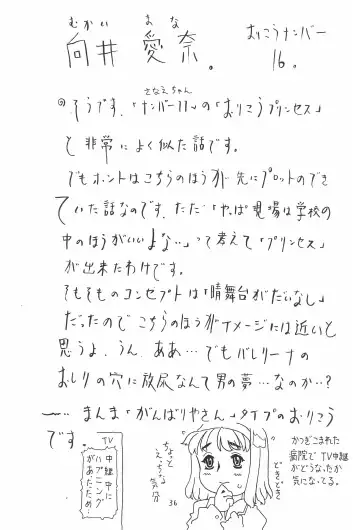 むかい まな
向井 愛奈。
おりこうナンバー
16。
◎そうです、「ナンバー11」の「おりこうプリンセス」
さなえちゃん
と非常によく似た話です。
でもホントはこちらのほうが先にプロットのでき
ていた話なのです。ただ「やっぱ現場は学校の
中のほうがいいよな…」って考えて「プリンセス」
が出来たわけです。
そもそものコンセプトは「晴舞台がだいなし」
だったのでこちらのほうがイメージには近いと
思うよ、うん、ああ…でもバレリーナの
おしりの穴に放尿なんて男の夢…なのか…?
まんま「がんばりやさん」タイプのおりこう
です。
TV
中継中に
ハプニング
があったため…
ちょっと
えっちな
気分
どきどき
かつぎこまれた
病院でTV中継
がどうなったか
気になってる。
36